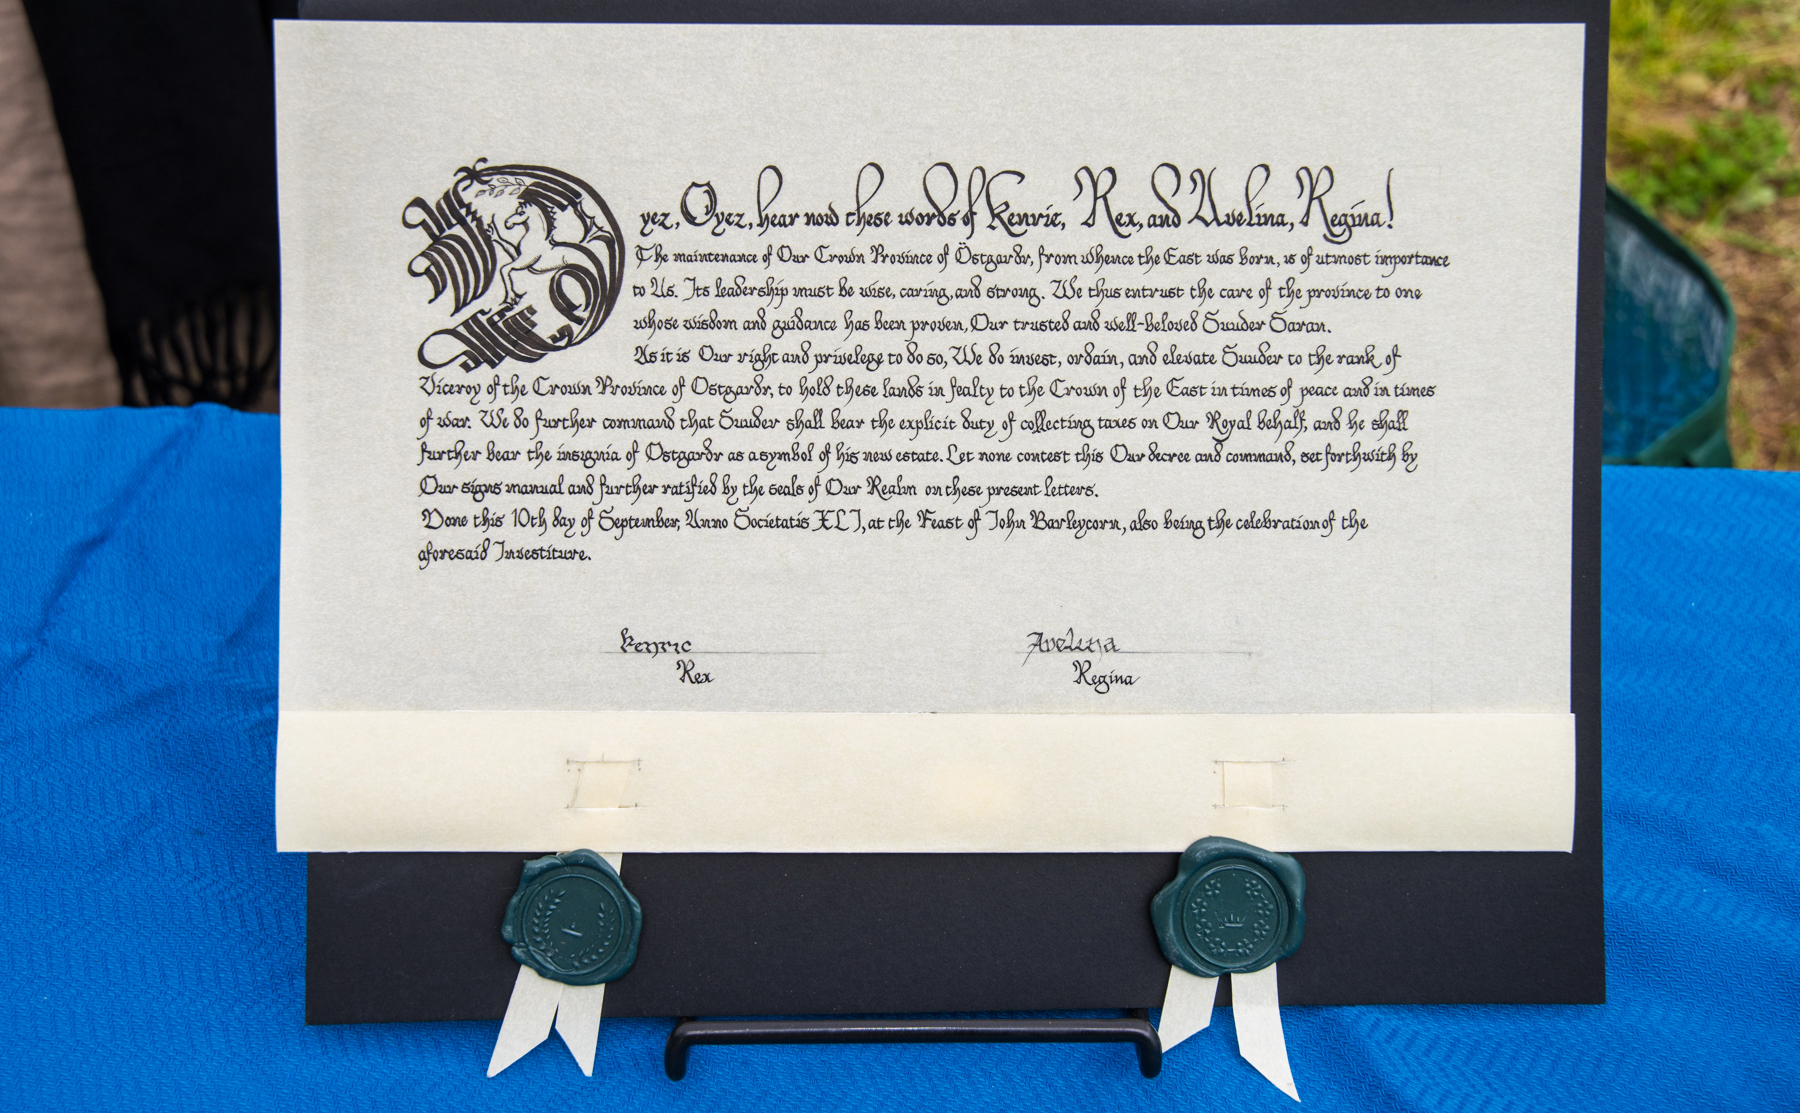 Oyez, Oyez, hear now these words of Kenric, Rex, and Avelina, Regina!
The maintenance of Our Crown Province of Östgardr, from whence the East was born, is of utmost importance
to Us. Its leadership must be wise, caring, and strong. We thus entrust the care of the province to one
whose wisdom and guidance has been proven, Our trusted and well-beloved Suuder Saran.
As it is Our right and privelege to do so, We do invest, ordain, and elevate Suuder to the rank of
Viceroy of the Crown Province of Ostgardr, to hold these lands in fealty to the Crown of the East in times of peace and in times
of war. We do further command that Suuder shall bear the explicit duty of collecting taxes on Our Royal behalf, and he shall
further bear the insignia of Ostgardr as a symbol of his new estate. Let none contest this Our decree and command, set forthwith by
Our signs manual and further ratified by the seals of Our Realm on these present letters.
Done this 10th day of September, Anno Societatis XLI, at the Feast of John Barleycorn, also being the celebration of the
aforesaid Investiture.
Kenric Avelina
Rex Regina